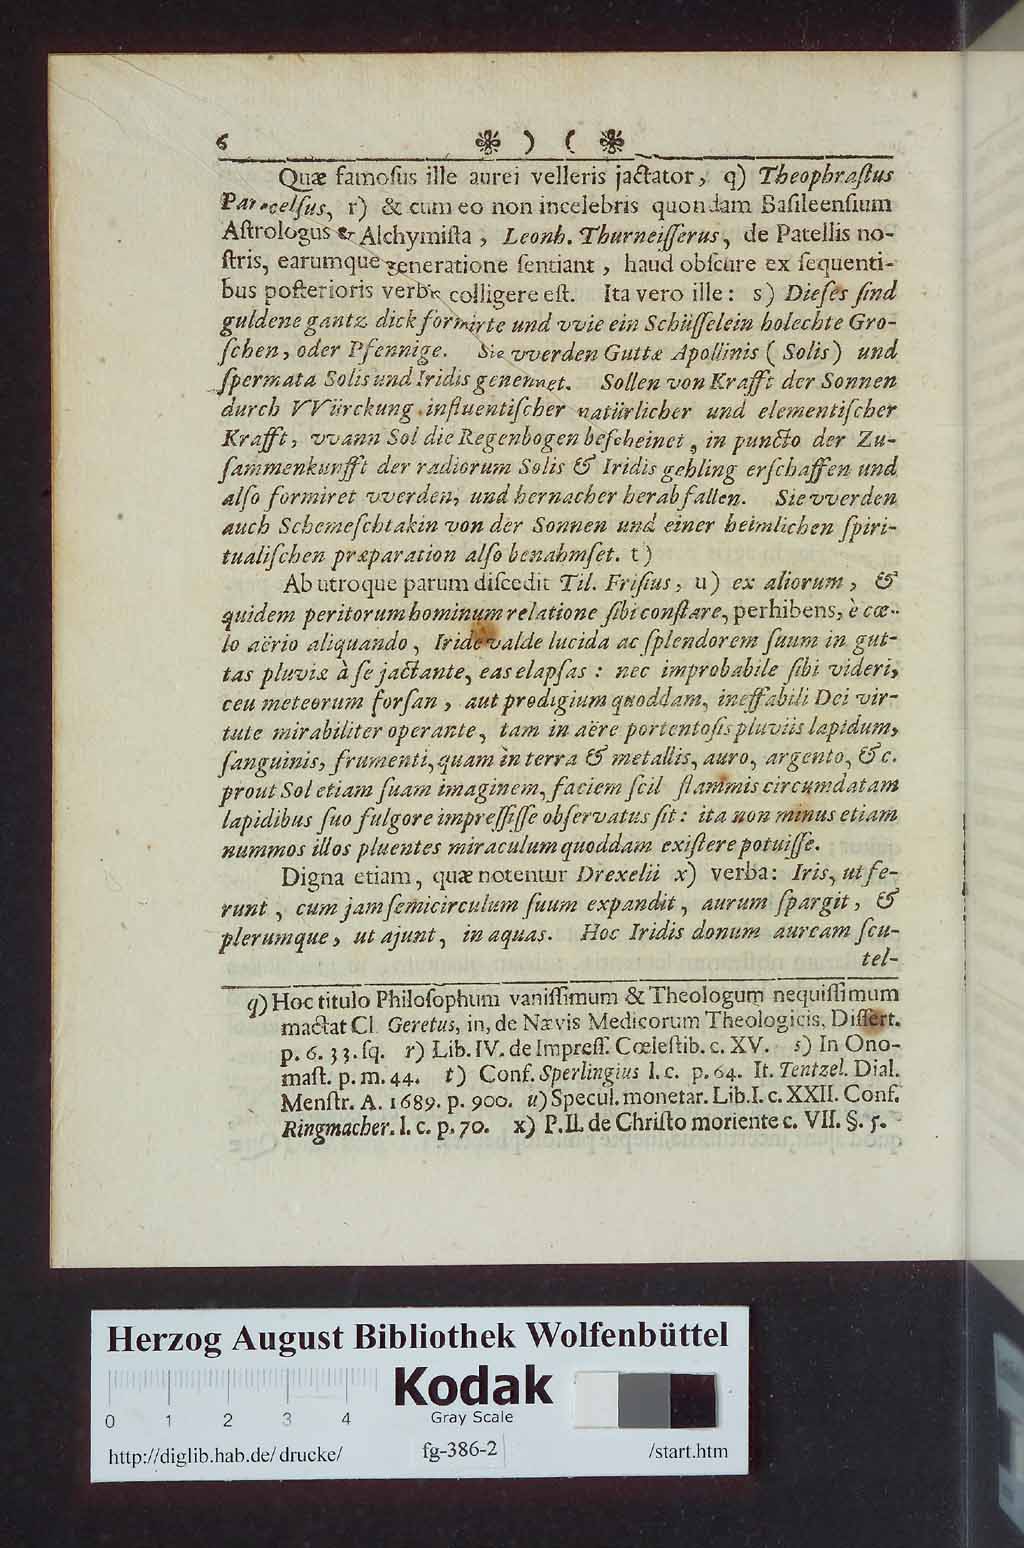 6 ❉ ) ( ❉
Quæ famoſus ille aurei velleris jactator, q) Theophraſtus
Paracelſus, r) & cum eo non incelebris quondam Baſileenſium
Aſtrologus & Alchymiſta, Leonh. Thurneiſſerus, de Patellis no-
ſtris, earumque generatione ſentiant, haud obſcure ex ſequenti-
bus poſterioris verbis colligere eſt. Ita vero ille: s) Dieſes ſind
guldene gantz dick formirte und vvie ein Schüſſelein holechte Gro-
ſchen, oder Pfennige. Sie vverden Guttæ Apollinis (Solis) und
ſpermata Solis und Iridis genennet. Sollen von Krafft der Sonnen
durch VVürckung influentiſcher natürlicher und elementiſcher
Krafft, vvann Sol die Regenbogen beſcheinet, in puncto der Zu-
ſammenkunfft der radiorum Solis & Iridis gehling erſchaffen und
alſo formiret vverden, und hernacher herabfallen. Sie vverden
auch Schemeſchtakin von der Sonnen und einer heimlichen ſpiri-
tualiſchen præparation alſo benahmſet. t)
Ab utroque parum diſcedit Til. Friſius, u) ex aliorum, &
quidem peritorum hominum relatione ſibi conſtare, perhibens, è cœ-
lo aërio aliquando, Iride valde lucida ac ſplendorem ſuum in gut-
tas pluviæ à ſe jactante, eas elapſas: nec improbabile ſibi videri,
ceu meteorum forſan, aut prodigium quoddam, ineffabili Dei vir-
tute mirabiliter operante, tam in aëre portentoſis pluviis lapidum,
ſanguinis, frumenti, quam in terra & metallis, auro, argento, &c.
prout Sol etiam ſuam imaginem, faciem ſcil flammis circumdatam
lapidibus ſuo fulgore impreſſiſſe obſervatus ſit: ita non minus etiam
nummos illos pluentes miraculum quoddam exiſtere potuiſſe.
Digna etiam, quæ notentur Drexelii x) verba: Iris, ut fe-
runt, cum jam ſemicirculum ſuum expandit, aurum ſpargit, &
plerumque, ut ajunt, in aquas. Hoc Iridis donum auream ſcu-
tel-
q) Hoc titulo Philoſophum vaniſſimum & Theologum nequiſſimum
mactat Cl. Geretus, in, de Nævis Medicorum Theologicis, Diſſert.
p. 6. 33. ſq. r) Lib. IV. de Impreſſ. Cœleſtib. c. XV. s) In Ono-
maſt. p. m. 44. t) Conf. Sperlingius l. c. p. 64. It. Tentzel. Dial.
Menſtr. A. 1689. p. 900. u) Specul. monetar. Lib. I. c. XXII. Conf.
Ringmacher. l. c. p. 70. x) P. II. de Chriſto moriente c. VII. §. 5.
Herzog August Bibliothek Wolfenbüttel
0 1 2 3 4
Kodak
Gray Scale
http://diglib.hab.de/drucke/ fg-386-2 /start.htm